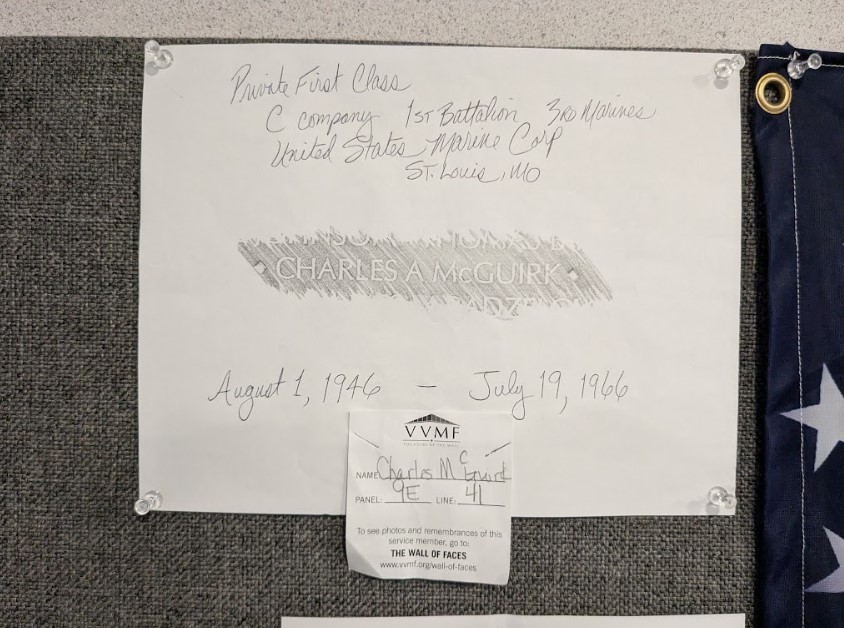 Private First Class
C company 1st Battalion 3rd Marines
United States Marine Corp
St. Louis, MO
CHARLES A McGUIRK
August 1, 1946 – July 19, 1966
VVMF
NAME: Charles McGuirk
PANEL: 9E LINE: 41
To see photos and remembrances of this
service member, go to:
THE WALL OF FACES
www.vvmf.org/wall-of-faces